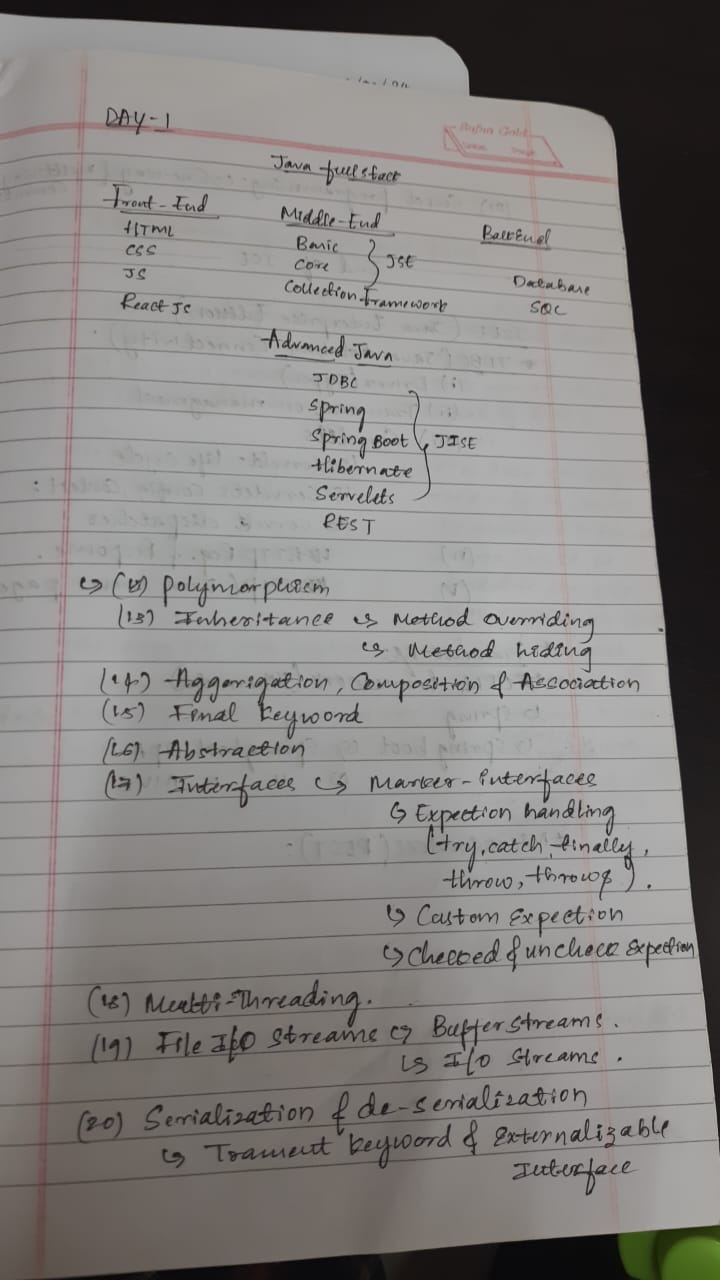 DAY-1
Rufin Gold
Java fullstact
Front-End Middle-End BackEnd
HTML Basic
CSS Core } JSE
JS Collection Framework Database
React Js SQL
Advanced Java
JDBC
Spring
Spring Boot } JISE
Hibernate
Servelets
REST
↳ (12) Polymorphism
(13) Inheritance ↳ Method Overriding
↳ Method hiding
(14) Aggerigation, Composition & Association
(15) Final keyword
(16) Abstraction
(17) Interfaces ↳ Marker-interfaces
↳ Expection handling
(try, catch, finally,
throw, throws).
↳ Custom Expection
↳ Checked & uncheck Expection
(18) Multi-Threading.
(19) File I/O Streams ↳ Buffer streams.
↳ I/O Streams.
(20) Serialization & de-serialization
↳ Transient keyword & Externalizable
Interface